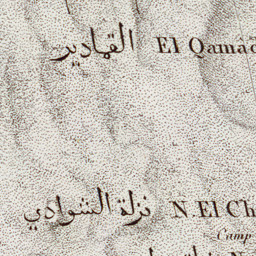 القمادير El Qamâd
نزلة الشوادي N. El Ch
Camp